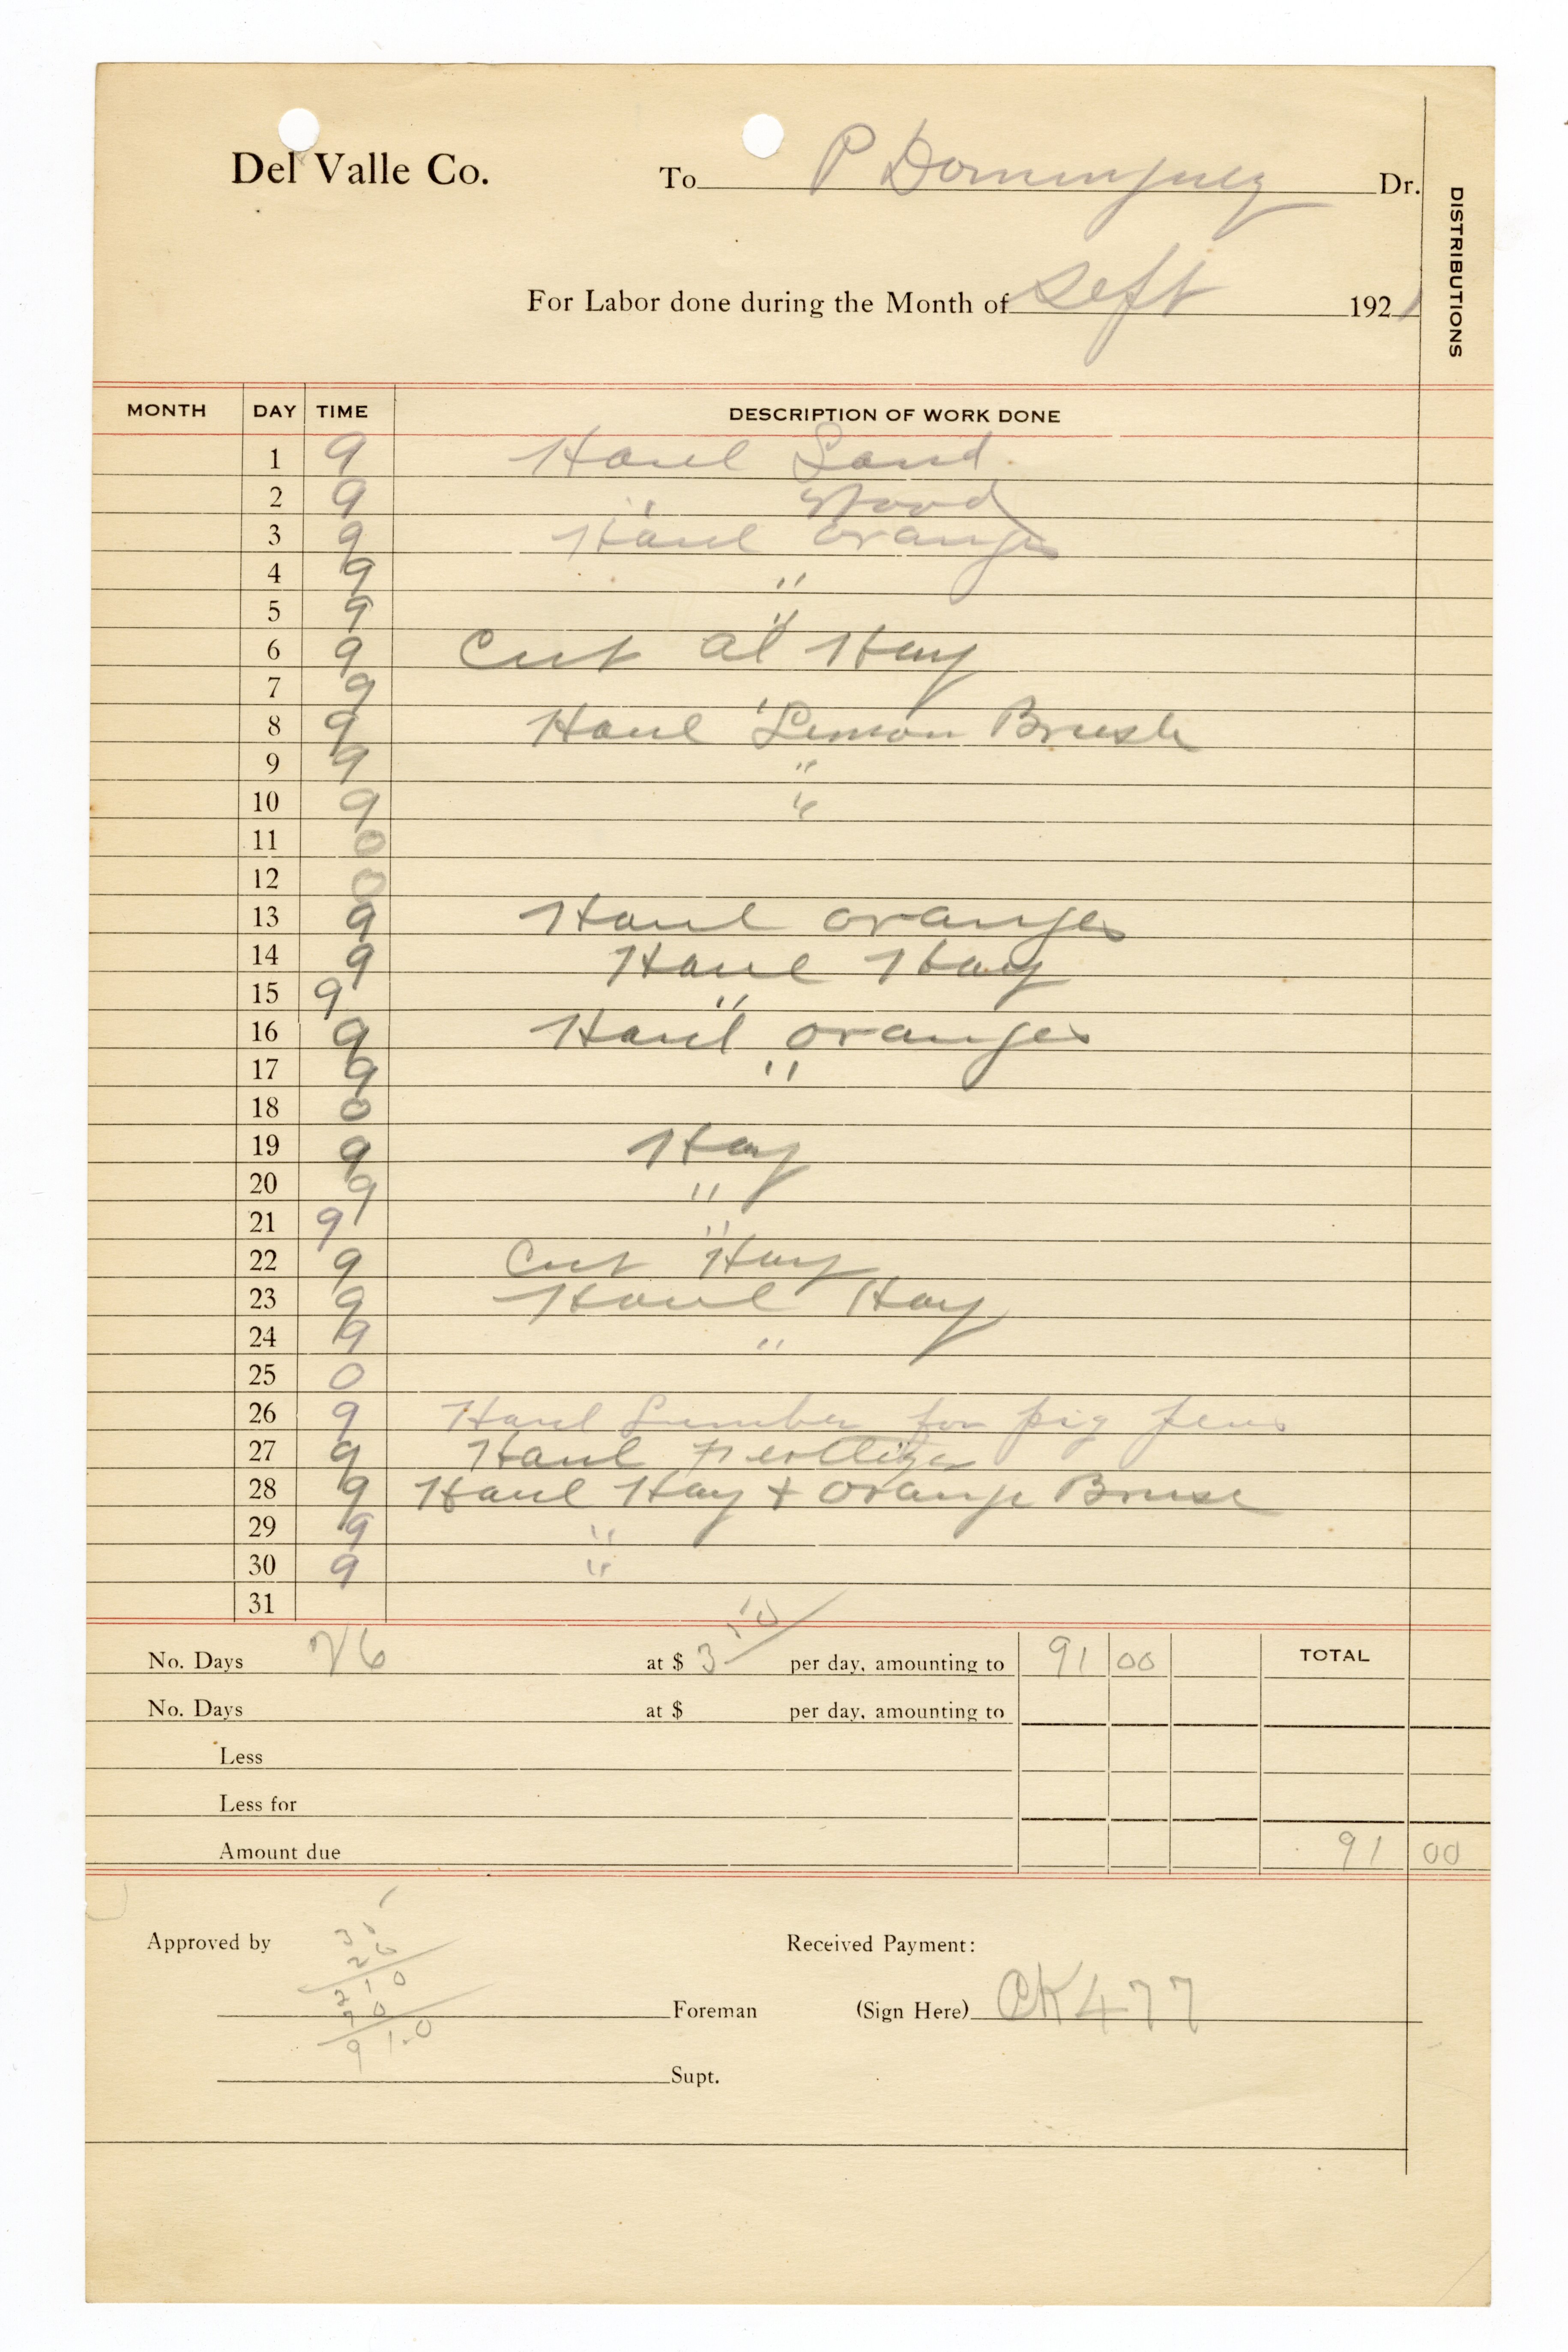 Del Valle Co. To P Dominguez Dr.
DISTRIBUTIONS
For Labor done during the Month of Sept 1921
MONTH DAY TIME DESCRIPTION OF WORK DONE
1 9 Haul Sand
2 9 " Wood
3 9 Haul oranges
4 9 "
5 9 "
6 9 Cut al Hay
7 9 "
8 9 Haul Lemon Brush
9 9 "
10 9 "
11 0
12 0
13 9 Haul oranges
14 9 Haul Hay
15 9 "
16 9 Haul oranges
17 9 "
18 0
19 9 Hay
20 9 "
21 9 "
22 9 Cut Hay
23 9 Haul Hay
24 9 "
25 0
26 9 Haul Lumber for pig pens
27 9 Haul
28 9 Haul Hay + Orange Brush
29 9 "
30 9 "
31
No. Days 26 at $ 3 50 per day, amounting to 91 00 TOTAL
No. Days at $ per day, amounting to
Less
Less for
Amount due 91 00
Approved by Received Payment:
26
210
70
91.0
Foreman (Sign Here) CK 477
Supt.